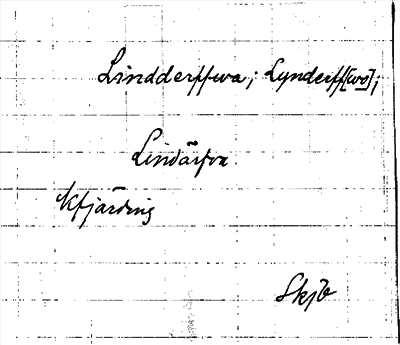 Lindderffwa; Lynderff[wo];
Lindärfva
kfjärding
SkjB